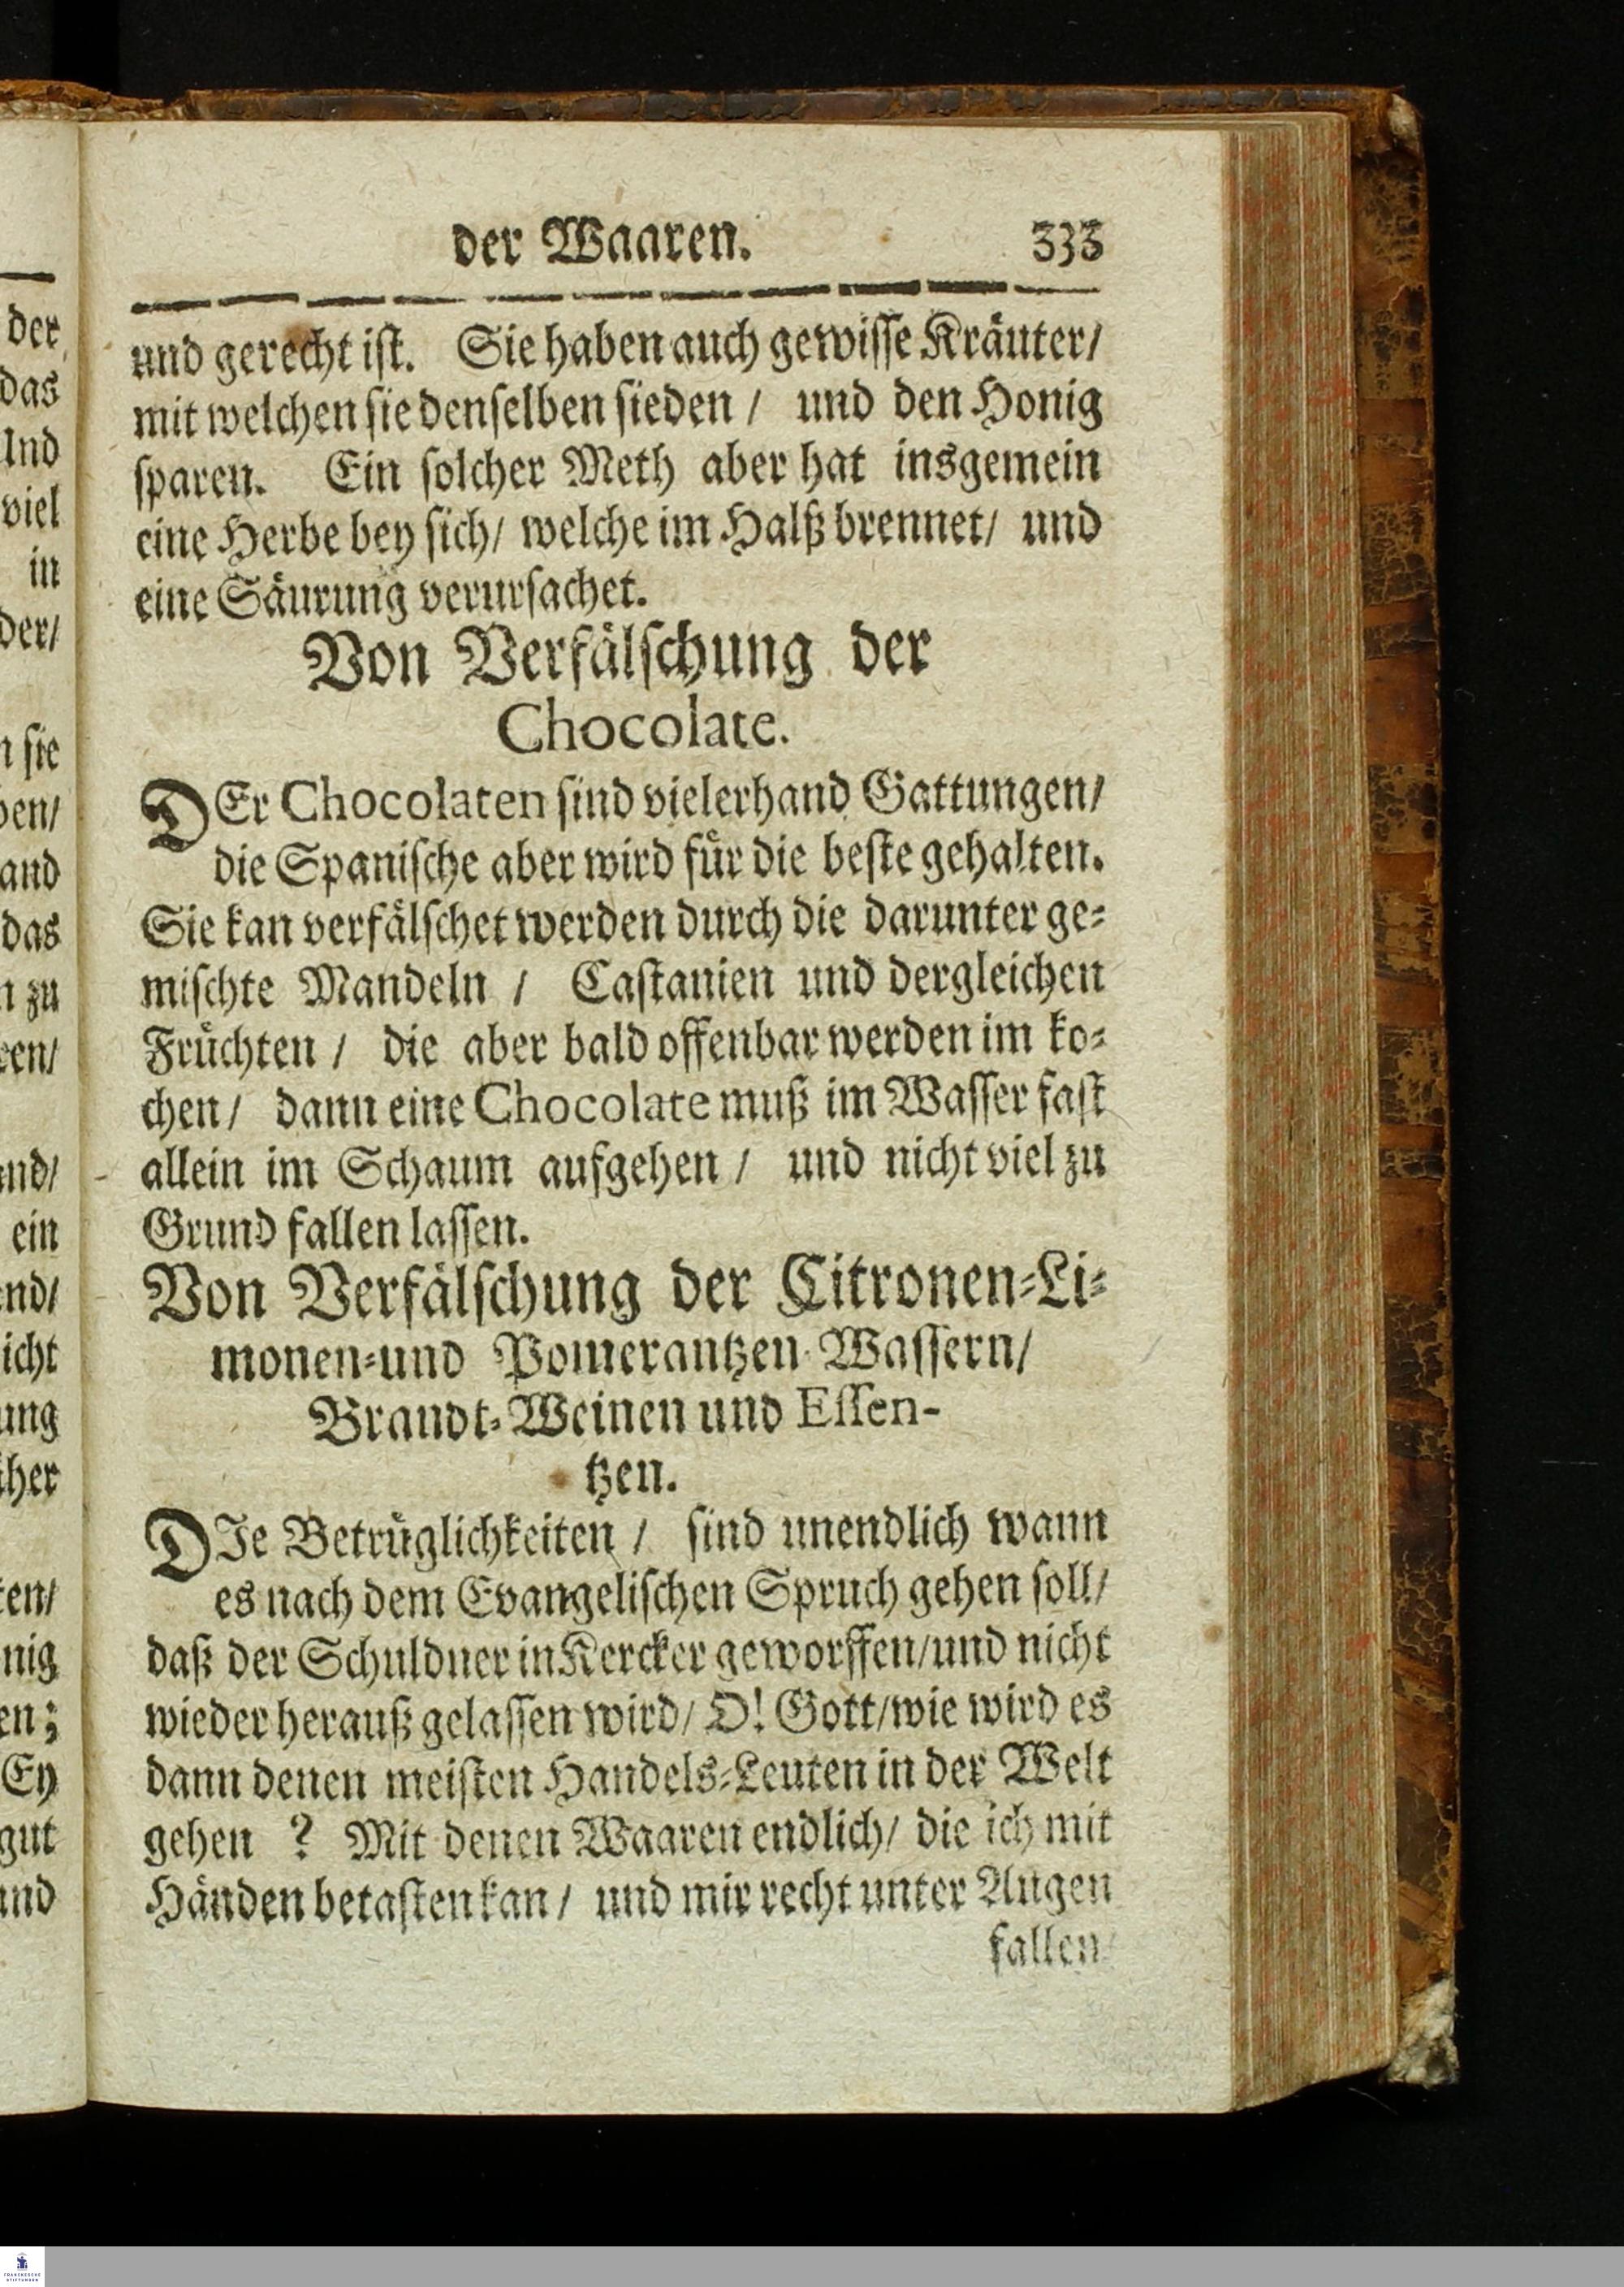 der Waaren. 333
und gerecht iſt. Sie haben auch gewiſſe Kraͤuter/
mit welchen ſie denſelben ſieden / und den Honig
ſparen. Ein ſolcher Meth aber hat insgemein
eine Herbe bey ſich/ welche im Halß brennet/ und
eine Saͤurung verurſachet.
Von Verfaͤlſchung der
Chocolate.
DEr Chocolaten ſind vielerhand Gattungen/
die Spaniſche aber wird fuͤr die beſte gehalten.
Sie kan verfaͤlſchet werden durch die darunter ge⸗
miſchte Mandeln / Caſtanien und dergleichen
Fruͤchten / die aber bald offenbar werden im ko⸗
chen / dann eine Chocolate muß im Waſſer faſt
allein im Schaum aufgehen / und nicht viel zu
Grund fallen laſſen.
Von Verfaͤlſchung der Citronen⸗Li⸗
monen⸗und Pomerantzen⸗Waſſern/
Brandt⸗Weinen und Eſſen-
tzen.
DIe Betruͤglichkeiten / ſind unendlich wann
es nach dem Evangeliſchen Spruch gehen ſoll/
daß der Schuldner in Kercker geworffen/und nicht
wieder herauß gelaſſen wird/ O! Gott/wie wird es
dann denen meiſten Handels⸗Leuten in der Welt
gehen ? Mit denen Waaren endlich/ die ich mit
Haͤnden betaſten kan / und mir recht unter Augen
fallen/
der
das
viel
in
der/
ſie
and
das
zu
ein
gut
FRANCKESCHE
STIFTUNGEN